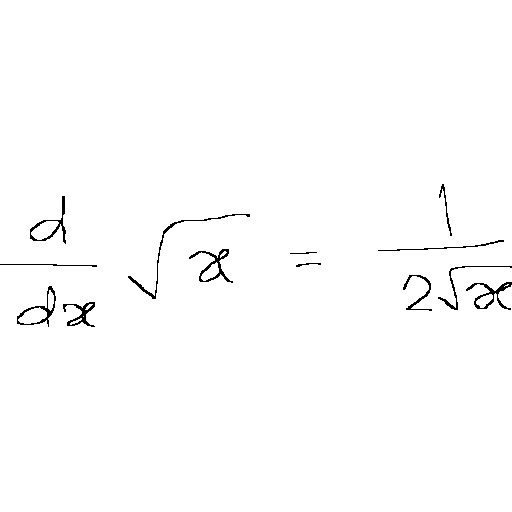 d/dx √x = 1/(2√x)